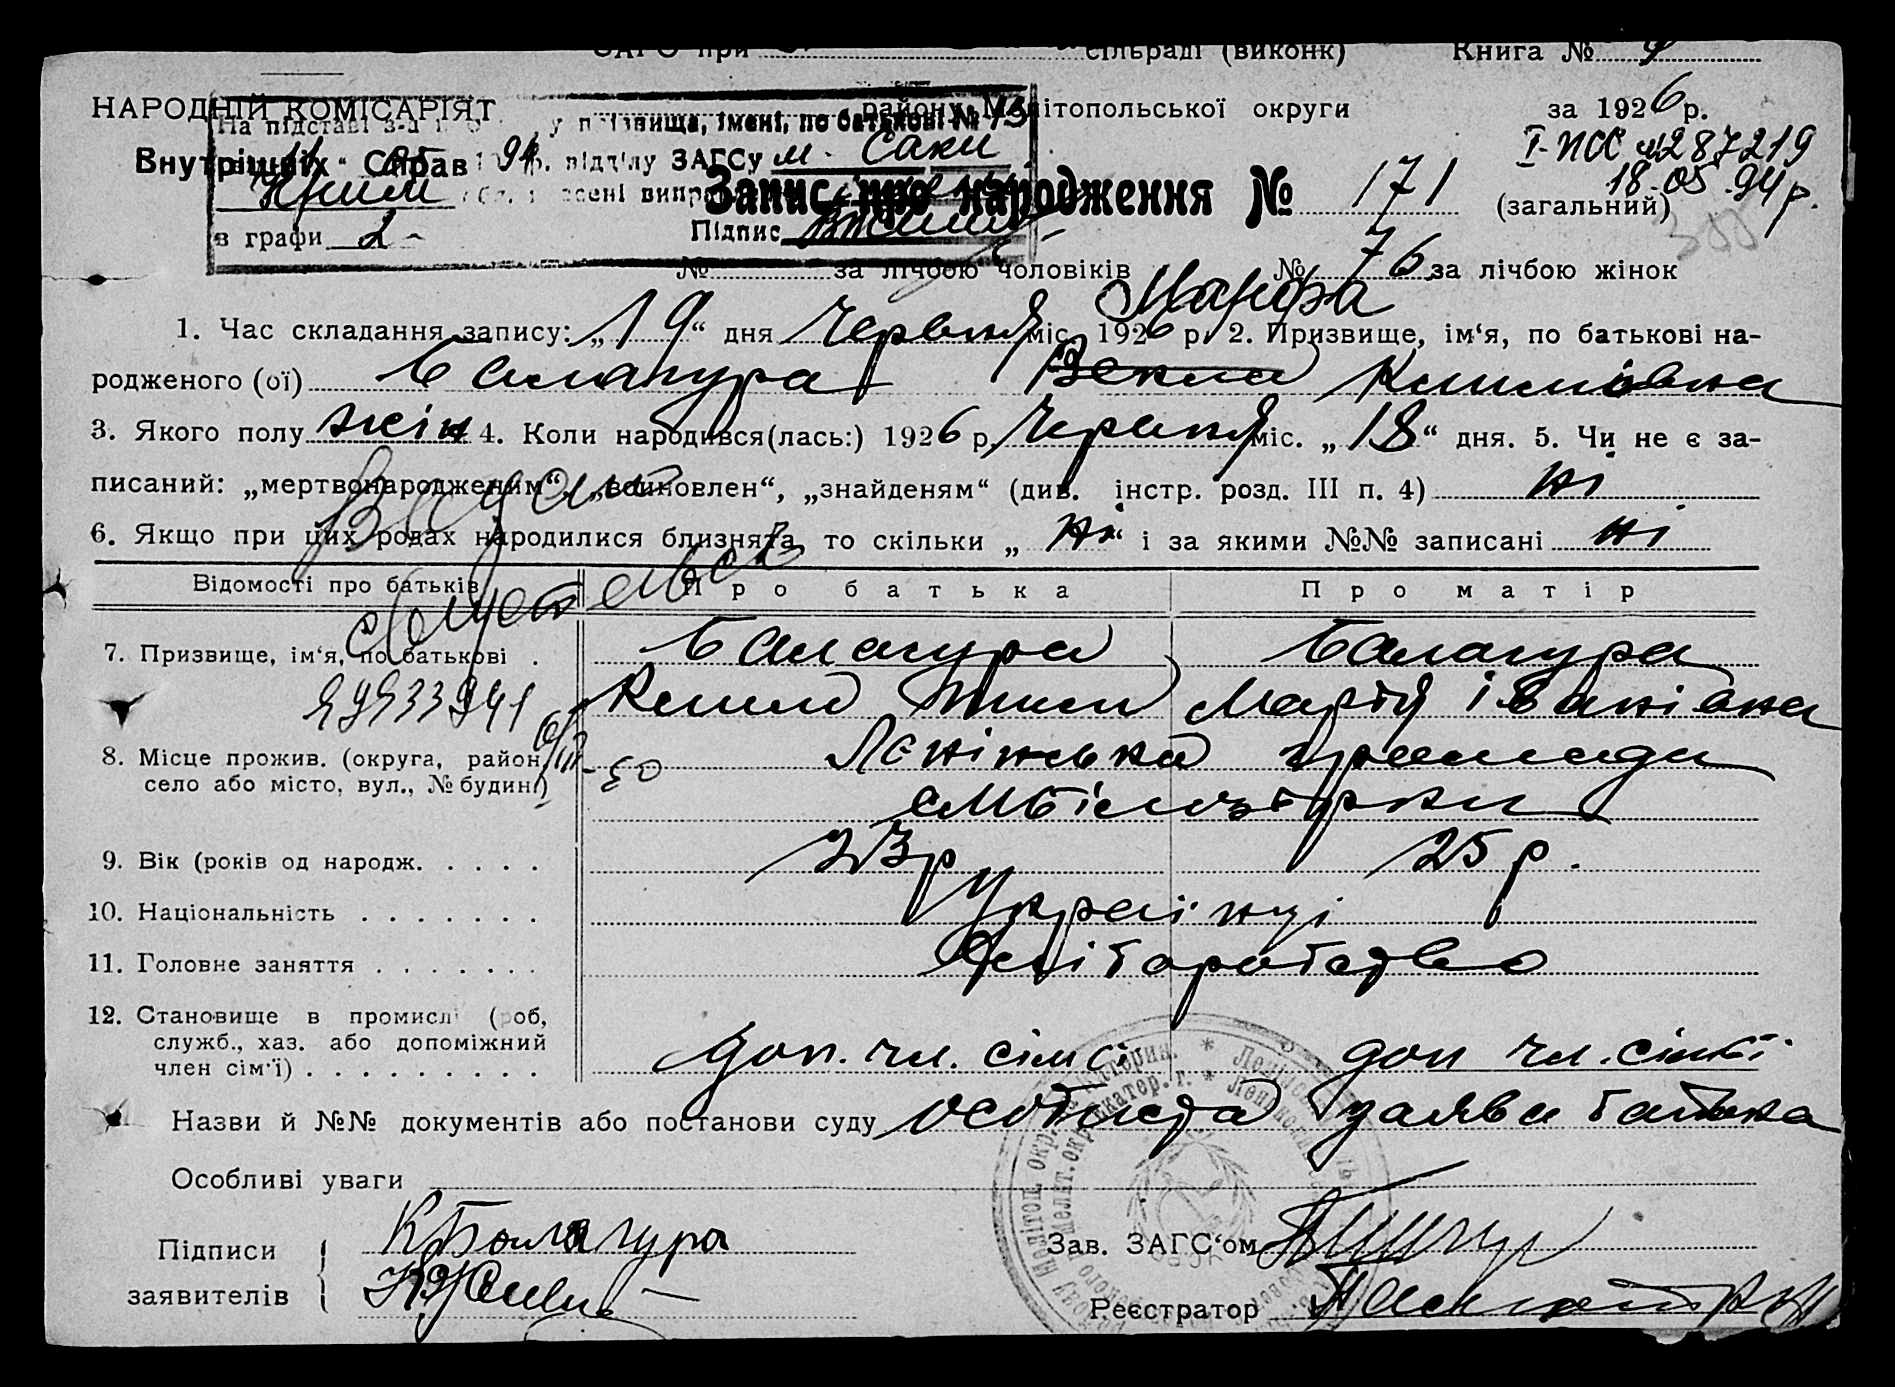 ЗАГС при сільраді (виконк) Книга №
НАРОДНІЙ КОМІСАРІЯТ району Мелітопольської округи за 1926 р.
На підставі з-а у прізвища, імені, по батькові № 13
Внутрішніх Справ 94 р. відділу ЗАГСу м. Саки І-ПСС № 287219
Крим внесені випр 18.05.94 р.
Запис про народження № 171 (загальний)
в графи 2 Підпис
№ за лічбою чоловіків № 76 за лічбою жінок
Марфа
1. Час складання запису: „19“ дня Червня міс. 1926 р. 2. Призвище, ім‘я, по батькові на-
родженого (ої) Балагура Векла Климівна
3. Якого полу жін 4. Коли народився(лась:) 1926 р. Червня міс. „18“ дня. 5. Чи не є за-
писаний: „мертвонародженим“, „всиновлен“, „знайденям“ (див. інстр. розд. III п. 4) ні
6. Якщо при цих родах народилися близнята, то скільки „ні“ і за якими №№ записані ні
Видано
свідетельсв
Відомості про батьків Про батька Про матір
7. Призвище, ім‘я, по батькові . Балагура Балагура
Клим Марія Іванівна
8. Місце прожив. (округа, район, село або місто, вул., № будин.) Ленінська громада
50
9. Вік (років од народж. . . . . 23 р 25 р.
10. Національність . . . . . . . Українці
11. Головне заняття . . . . . . . Хліборобство
12. Становище в промислі (роб,
служб., хаз. або допоміжний
член сім‘ї) . . . . . . . . . . доп. чл. сімї доп чл. сімї
Назви й №№ документів або постанови суду особиста заява батька
Особливі уваги
Підписи К Балагура Зав. ЗАГС‘ом
заявителів Реєстратор